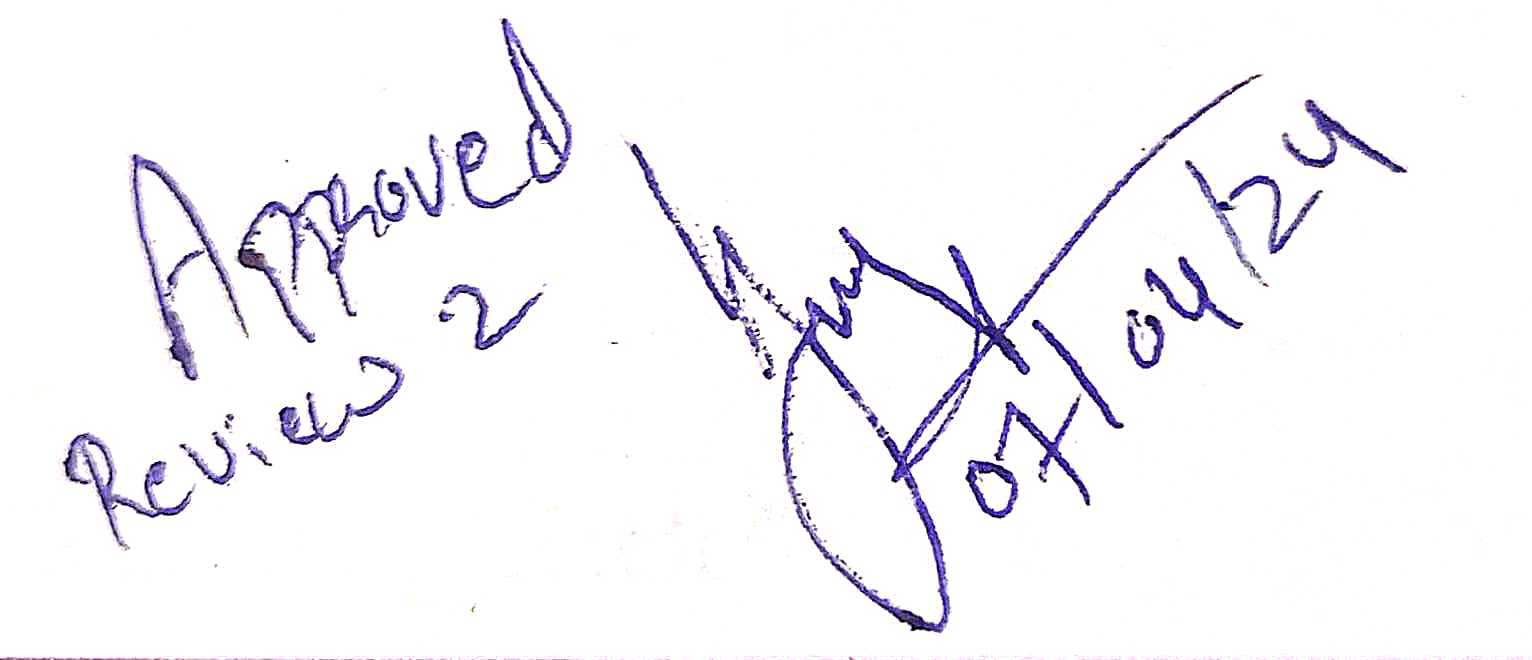 Approved
Review 2
07/04/24